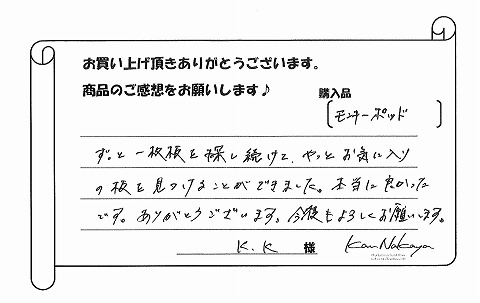 お買い上げ頂きありがとうございます。
商品のご感想をお願いします♪
購入品
モンキーポッド
ずっと一枚板を探し続けて、やっとお気に入り
の板を見つけることができました。本当に良かった
です。ありがとうございます。今後もよろしくお願いします。
K.K 様
Kan Nakaya